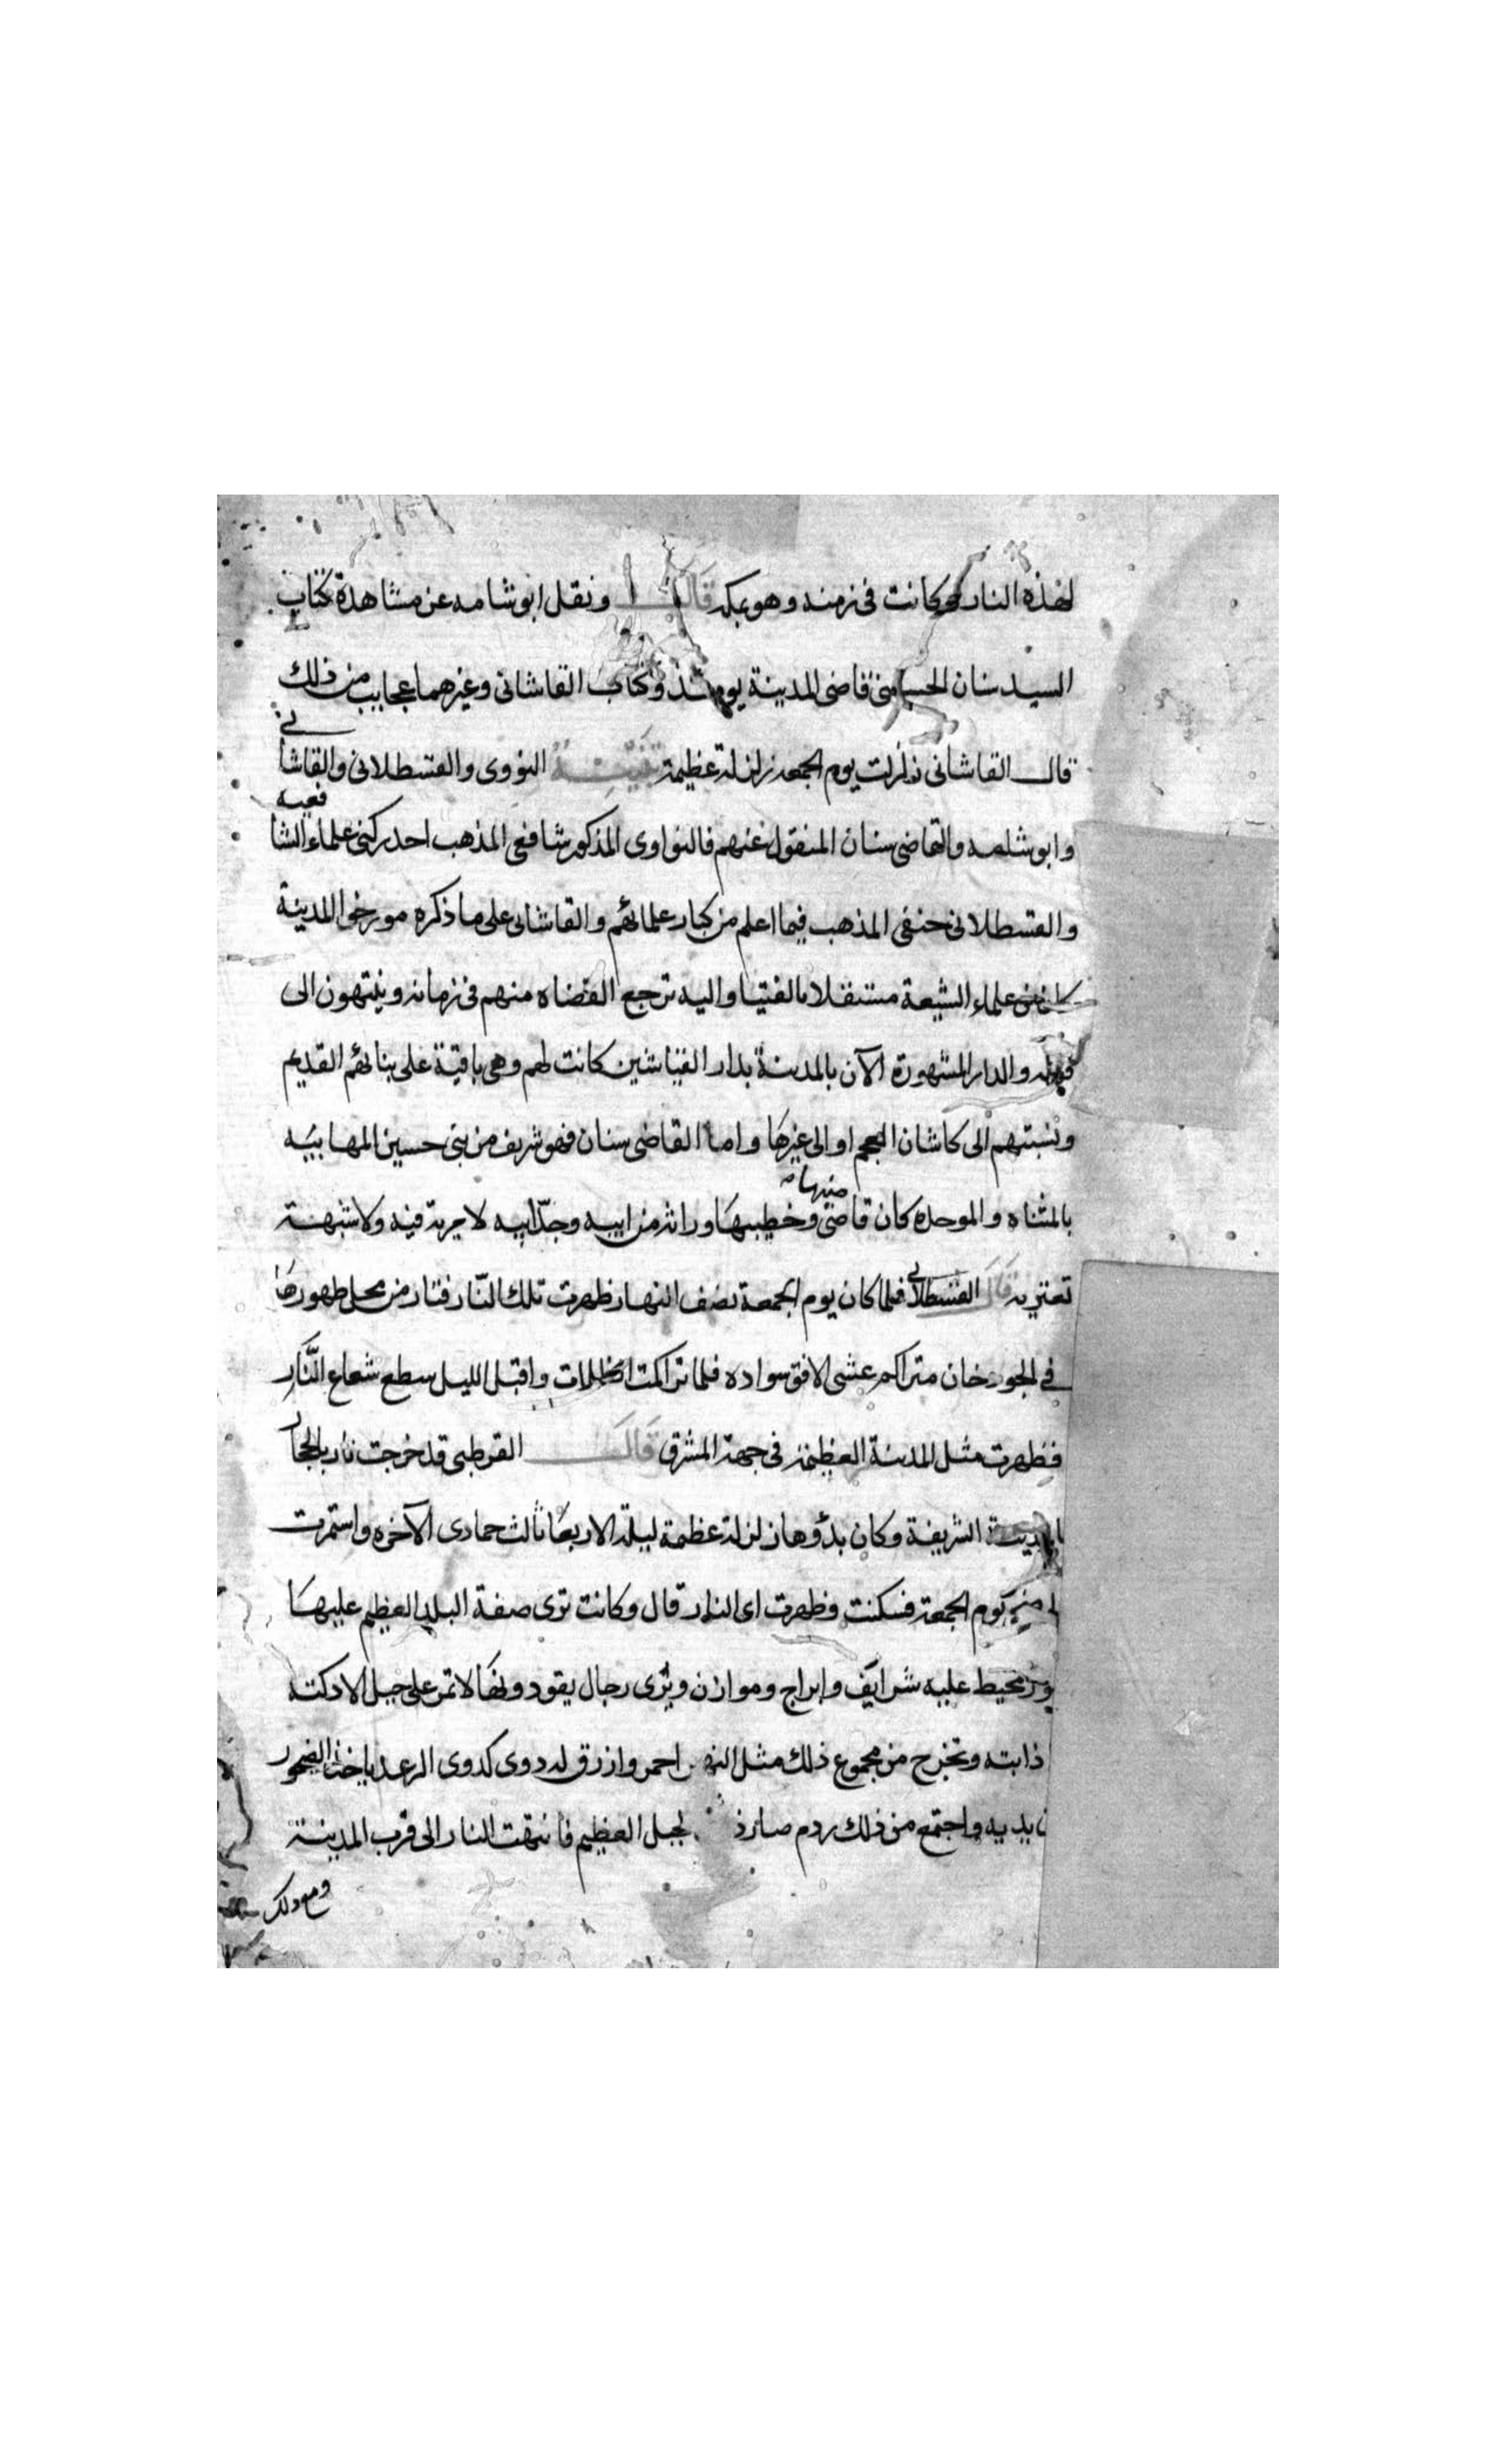 لهذه النار وكانت في زمنه وهو بمكه قال ونقل ابو شامه عن مشاهدة كتاب
السيد سنان الحسيني قاضي المدينة يومئذ وكتاب القاشاني وغيرهما عجايب من ذلك
قال القاشاني زلزلت يوم الجمعه زلزلة عظيمة تنبيـه النووي والقسطلاني والقاشاني
وابو شامه والقاضي سنان المنقول عنهم فالنواوي المذكور شافعي المذهب احد ركني علماء الشافعيه
والقسطلاني حنفي المذهب فيما اعلم من كبار علمائهم والقاشاني على ما ذكره مورخوا المدينة
كان من علماء الشيعة مستقلا بالفتيا واليه ترجع القضاه منهم في زمانه وينتهون الى
قوله والدار المشهورة الآن بالمدينة بدار القياشين كانت لهم وهي باقية على بنائهم القديم
ونسبتهم الى كاشان العجم او الى غيرها واما القاضي سنان فهو شريف من بني حسين المهابيه
بالمثناه والموحده كان قاضي منها وخطيبها وراثه من ابيه وجد ابيه لا مرية فيه ولا شبهة
تعتريه قال القسطلاني فلما كان يوم الجمعة نصف النهار ظهرت تلك النّار فثار من محل ظهورها
في الجو دخان متراكم غشى الافق سواده فلما تراكمت الظلمات واقبل الليل سطع شعاع النَّار
فظهرت مثل المدينة العظيمة في جهة المشرق قال القرطبي قد خرجت نار بالحجاز
بالمدينة الشريفة وكان بدؤها زلزلة عظمة ليلة الاربعا ثالث جمادى الآخره واستمرت
الى ضحى يوم الجمعة فسكنت وظهرت اى النار قال وكانت ترى صفة البلد العظيم عليها
محيط عليه شراريف وابراج وموازن ويُرى رجال يقودونها لا تمر على جبل الا دكته
ذابته وتخرج من مجموع ذلك مثل النهر احمر وازرق له دوى كدوى الرعد ياخذ الصخور
بين يديه واجتمع من ذلك ردم صار الجبل العظيم فانتهت النار الى قرب المدينة
ومع ذلك